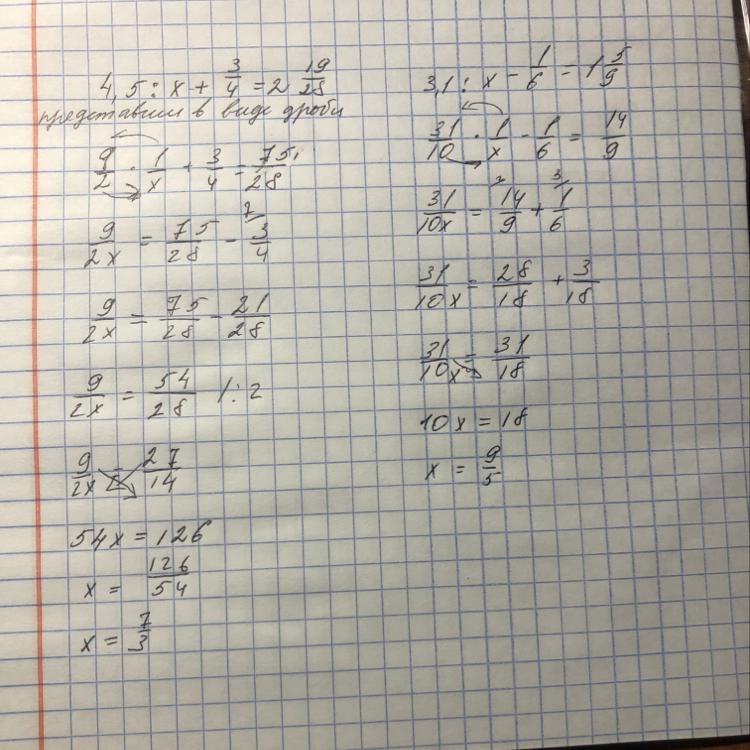 4,5 : x + 3/4 = 2 19/28
представим в виде дроби
9/2 · 1/x + 3/4 = 75/28
9/2x = 75/28 - 3/4 7
9/2x = 75/28 - 21/28
9/2x = 54/28 /:2
9/2x = 27/14
54x = 126
x = 126/54
x = 7/3
3,1 : x - 1/6 = 1 5/9
31/10 · 1/x - 1/6 = 14/9
31/10x = 2 14/9 + 3 1/6
31/10x = 28/18 + 3/18
31/10x = 31/18
10x = 18
x = 9/5